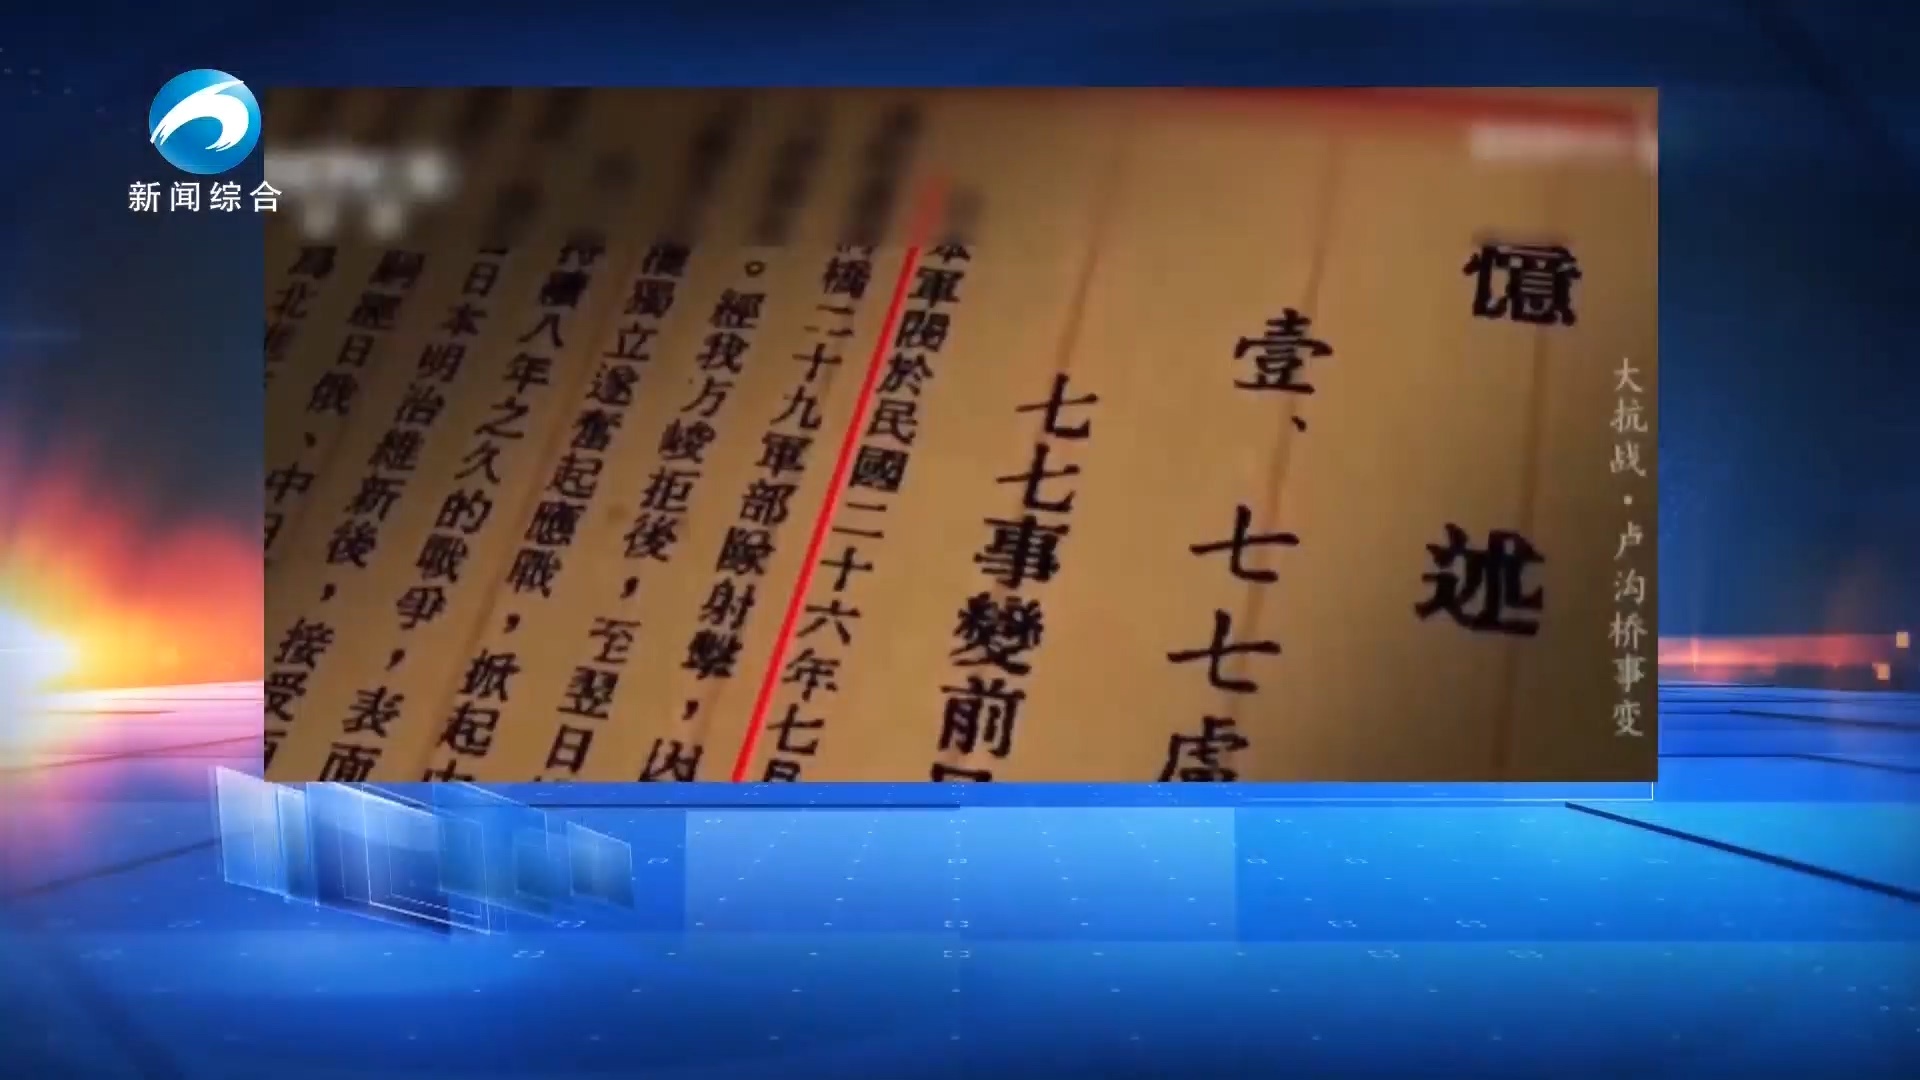 新闻综合
大抗战·卢沟桥事变
憶述
壹、七七盧
七七事變前
本軍閥於民國二十六年七月
橋二十九軍部隊射擊，因
。經我方峻拒後，至翌日
權獨立遂奮起應戰，掀起
持續八年之久的戰爭，表面
日本明治維新後，接受
嗣經日俄、中日
為北進